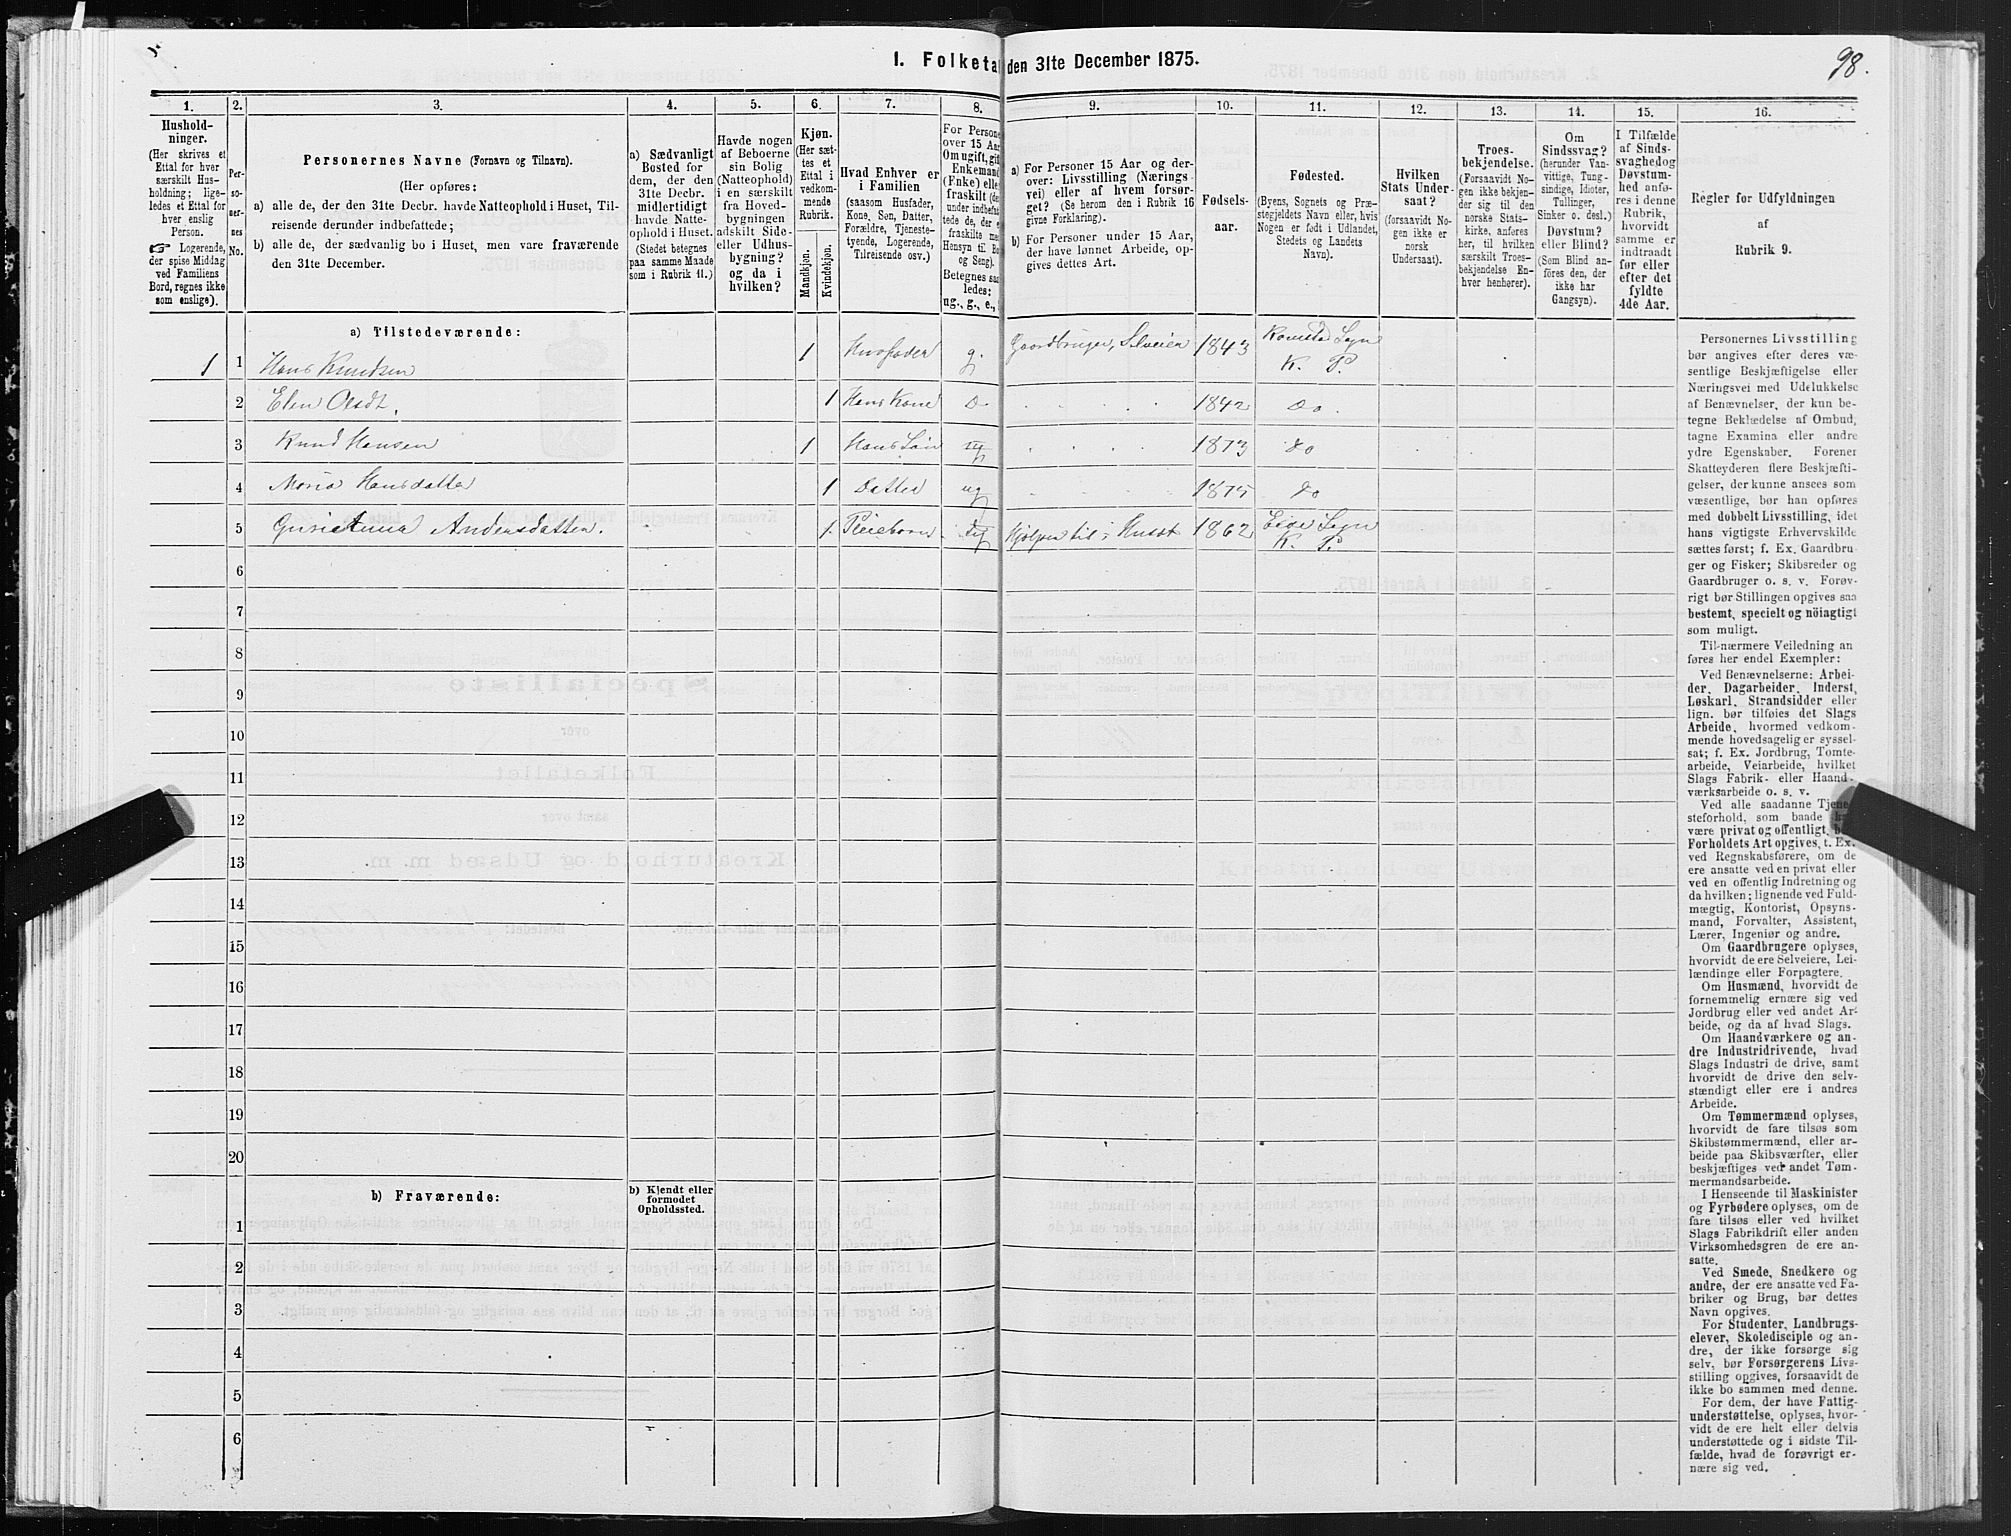 1. Folketal den 31te December 1875.
98.
1.
2.
3.
4.
5.
6.
7.
8.
9.
10.
11.
12.
13.
14.
15.
16.
Hushold-
ninger.
(Her skrives et
Ettal for hver
særskilt Hus-
holdning; lige-
ledes et Ettal for
hver enslig
Person.
☞ Logerende,
der spise Middag
ved Familiens
Bord, regnes ikke
som enslige).
Per-
so-
ner-
nes
No.
Personernes Navne (Fornavn og Tilnavn).
(Her opføres:
a) alle de, der den 31te Decbr. havde Natteophold i Huset, Til-
reisende derunder indbefattede;
b) alle de, der sædvanlig bo i Huset, men vare fraværende
den 31te December.
a) Sædvanligt
Bosted for
dem, der den
31te Decbr.
midlertidigt
havde Natte-
ophold i Huset.
(Stedet betegnes
paa samme Maade
som i Rubrik 11.)
Havde nogen
af Beboerne
sin Bolig
(Natteophold)
i en særskilt
fra Hoved-
bygningen
adskilt Side-
eller Udhus-
bygning?
og da i
hvilken?
Kjøn.
(Her sæt-
tes et
Ettal i
vedkom-
mende
Rubrik.
Mandkjøn.
Kvindekjøn.
Hvad Enhver er
i Familien
(saasom Husfader,
Kone, Søn, Datter,
Forældre, Tjeneste-
tyende, Logerende,
Tilreisende osv.)
For Persone
over 15 Aar
Om ugift, gif
Enkemand
(Enke) elle
fraskilt (de
under indbefat
tede de, der e
fraskilte med
Hensyn til Bo
og Seng).
Betegnes saa
ledes:
ug., g., e.,
a) For Personer 15 Aar og der-
over: Livsstilling (Nærings
vei) eller af hvem forsør-
get? (Se herom den i Rubrik 16
givne Forklaring).
b) For Personer under 15 Aar,
der have lønnet Arbeide, op-
gives dettes Art.
Fødsels-
aar.
Fødested.
(Byens, Sognets og Præ-
stegjeldets Navn eller, hvis
Nogen er født i Udlandet,
Stedets og Landets
Navn).
Hvilken
Stats Under-
saat?
(forsaavidt No-
gen ikke er
norsk
Undersaat).
Troes-
bekjendelse.
(Forsaavidt No-
gen ikke bekjen-
der sig til den
norske Stats-
kirke, anføres
her, til hvilken
særskilt Troes-
bekjendelse En-
hver henhører).
Om
Sindssvag?
(herunder Van-
vittige, Tung-
sindige, Idioter,
Tullinger,
Sinker o. desl.)
Døvstum?
eller Blind?
(Som Blind an-
føres den, der
ikke har
Gangsyn).
I Tilfælde
af Sinds-
svaghedog
Døvstum-
hed anfø-
res i denne
Rubrik,
hvorvidt
samme er
indtraadt
før eller
efter det
fyldte
4de Aar.
Regler for Udfyldningen
af
Rubrik 9.
a) Tilstedeværende:
1 1 Hans Knudsen 1 Husfader g. Gaardbruger, Selveier 1843 Sogn
K. P.
2 Elen 1 Hans Kone D. 1842 Do.
3 Knud Hansen 1 Hans Søn ug 1873 do
4 Maria Hansdatter 1 Datter ug 1875 do
5 Andersdatter. 1. Pleiebarn ug Hjelper til i Huset 1862 Eide Sogn
K. P.
6
7
8
9
10
11
12
13
14
15
16
17
18
19
20
b) Fraværende:
b) Kjendt eller
formodet
Opholdssted.
1
2
3
4
5
6
Personernes Livsstilling
bør angives efter deres væ-
sentlige Beskjæftigelse eller
Næringsvei med Udelukkelse
af Benævnelser, der kun be-
tegne Beklædelse af Ombud,
tagne Examina eller andre
ydre Egenskaber. Forener
Skatteyderen flere Beskjæfti-
gelser, der kunne ansees som
væsentlige, bør han opføres
med dobbelt Livsstilling, idet
hans vigtigste Erhvervskilde
sættes først; f. Ex. Gaardbru-
ger og Fisker; Skibsreder og
Gaardbruger o. s. v. Forøv-
rigt bør Stillingen opgives saa
bestemt, specielt og nöiagtigt
som muligt.
Til nærmere Veiledning an
føres her endel Exempler:
Ved Benævnelserne: Arbei-
der, Dagarbeider, Inderst,
Løskarl, Strandsidder eller
lign. bør tilføies det Slags
Arbeide, hvormed vedkom-
mende hovedsagelig er syssel-
sat; f. Ex. Jordbrug, Tomte-
arbeide, Veiarbeide, hvilket
Slags Fabrik- eller Haand-
værksarbeide o. s. v.
Ved alle saadanne Tjene-
steforhold, som baade
være privat og offentligt,
Forholdets Art opgives, t. Ex.
ved Regnskabsførere, om de
ere ansatte ved en privat eller
ved en offentlig Indretning og
da hvilken; lignende ved Fuld-
mægtig, Kontorist, Opsyns-
mand, Forvalter, Assistent,
Lærer, Ingeniør og andre.
Om Gaardbrugere oplyses,
hvorvidt de ere Selveiere, Lei-
lændinge eller Forpagtere.
Om Husmænd, hvorvidt de
fornemmelig ernære sig ved
Jordbrug eller ved andet Ar-
beide, og da af hvad Slags.
Om Haandværkere og an-
dre Industridrivende, hvad
Slags Industri de drive, samt
hvorvidt de drive den selv-
stændigt eller ere i andres
Arbeide.
Om Tømmermænd oplyses,
hvorvidt de fare tilsøs som
Skibstømmermænd, eller ar-
beide paa Skibsværfter, eller
beskjæftiges ved andet Tøm-
mermandsarbeide.
I Henseende til Maskinister
og Fyrbødere oplyses, om de
fare tilsøs eller ved hvilket
Slags Fabrikdrift eller anden
Virksomhedsgren de ere an-
satte.
Ved Smede, Snedkere og
andre, der ere ansatte ved Fa-
briker og Brug, bør dettes
Navn opgives.
For Studenter, Landbrugs-
elever, Skoledisciple og an-
dre, der ikke forsørge sig
selv, bør Forsørgerens Livs-
stilling opgives, forsaavidt de
ikke bo sammen med denne.
For dem, der have Fattig-
understøttelse, oplyses, hvor-
vidt de ere helt eller delvis
understøttede og i sidste Til-
fælde, hvad de forøvrigt er-
nære sig ved.